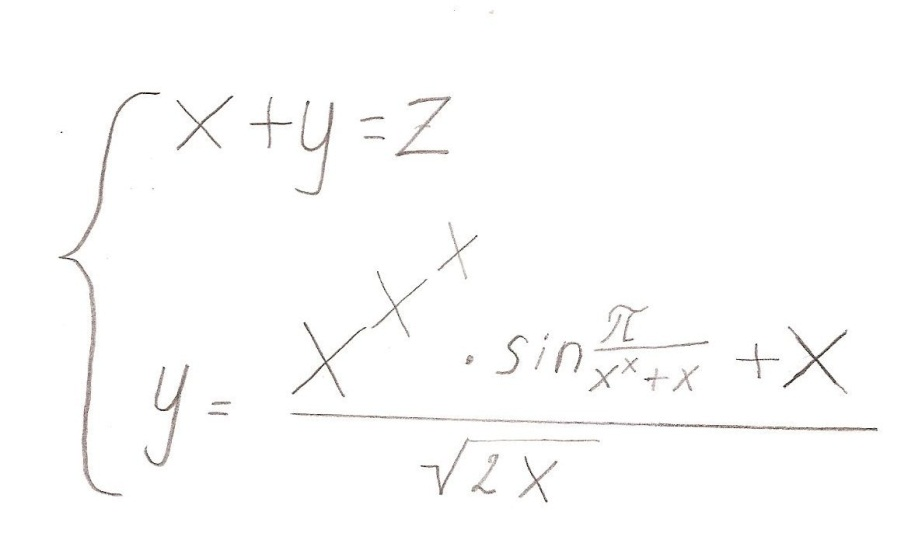 x + y = z
y = \frac{x^{x^x} \cdot \sin\frac{\pi}{x^x + x} + x}{\sqrt{2x}}